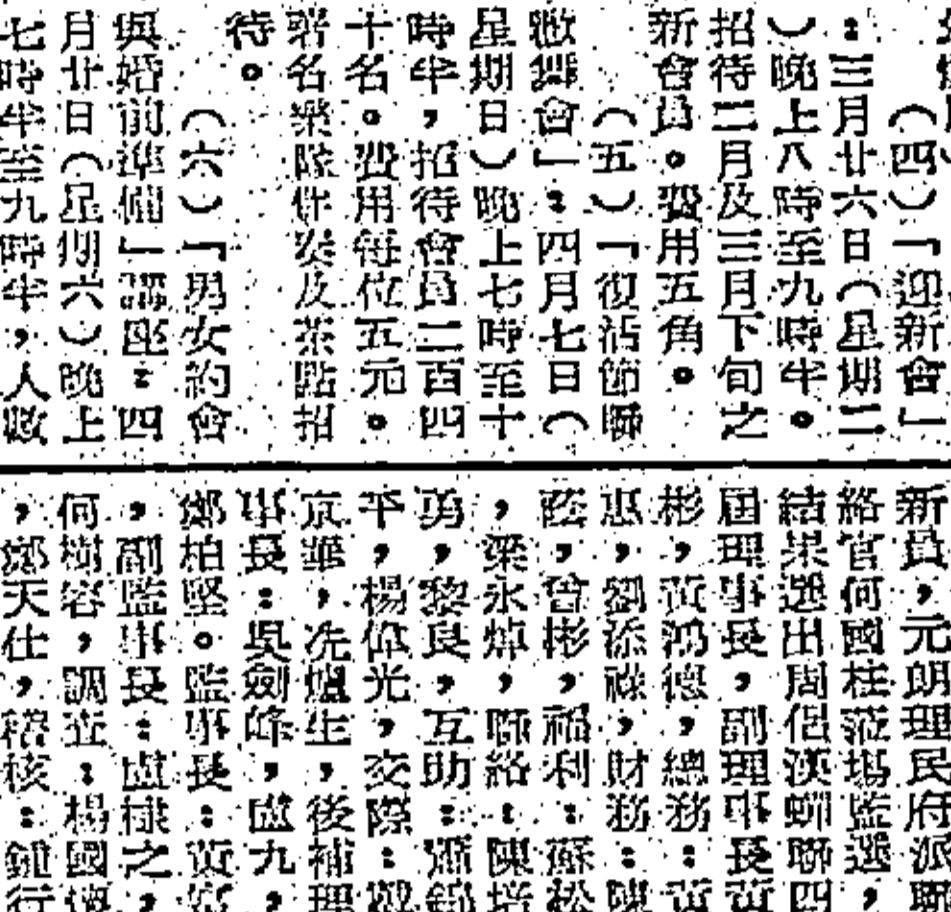 （四）「迎新會」
：三月廿六日（星期二
）晚上八時至九時半。
招待二月及三月下旬之
新會員。費用五角。
（五）「復活節聯
歡舞會」：四月七日（
星期日）晚上七時至十
時半，招待會員二百四
十名。費用每位五元。
著名樂隊伴奏及茶點招
待。
（六）「男女約會
與婚前準備」講座：四
月廿日（星期六）晚上
七時半至九時半，人數
新員，元朗理民府派聯
絡官何國柱蒞場監選，
結果選出周侶漢蟬聯四
屆理事長，副理事長黃
彬，黃鴻德，總務：黃
惠，劉添祿，財務：陳
，曾彬，福利：蘇松
，梁永焯，聯絡：陳培
勇，黎良，互助：蕭錦
平，楊偉光，交際：
京華，冼爐生，後補理
事長：吳劍峰，盧九，
鄭柏堅。監事長：黃
，副監事長：盧棣之，
何樹容，調查：楊國
，鄭天仕，稽核：鍾行